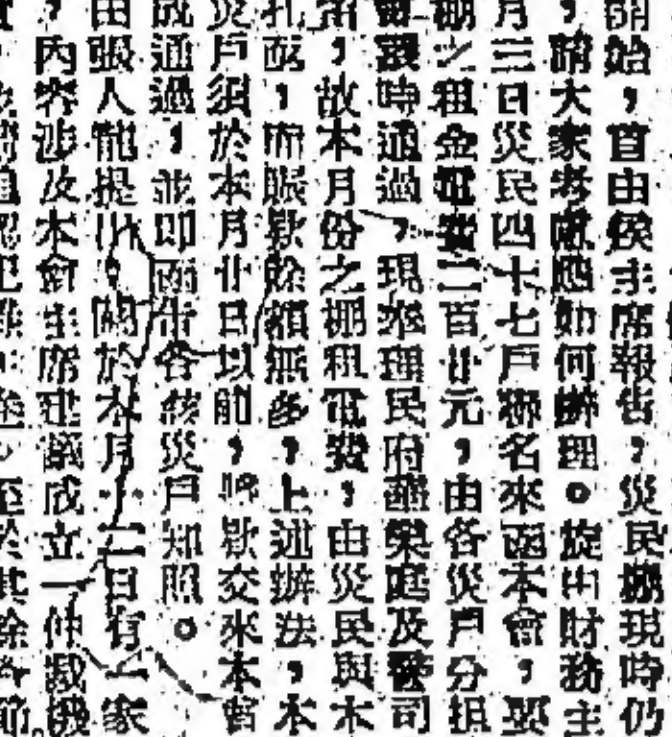 開始，首由侯主席報告，災民棚現時仍
，請大家考慮應如何辦理。旋由財務主
月三日災民四十七戶聯名來函本會，要
棚之租金電費二百廿元，由各災戶分担
電議時通過，現奉理民府　樂庭及　司
，故本月份之棚租電費，由災民與本
孔亟，而賑欵餘額無多，上述辦法，本
災戶須於本月廿日以前，將欵交來本會
成通過，並即函告各該災戶知照。
由張人龍提出，關於本月十二日有一家
，內容涉及本會主席建議成立一仲裁機
至於其餘　節